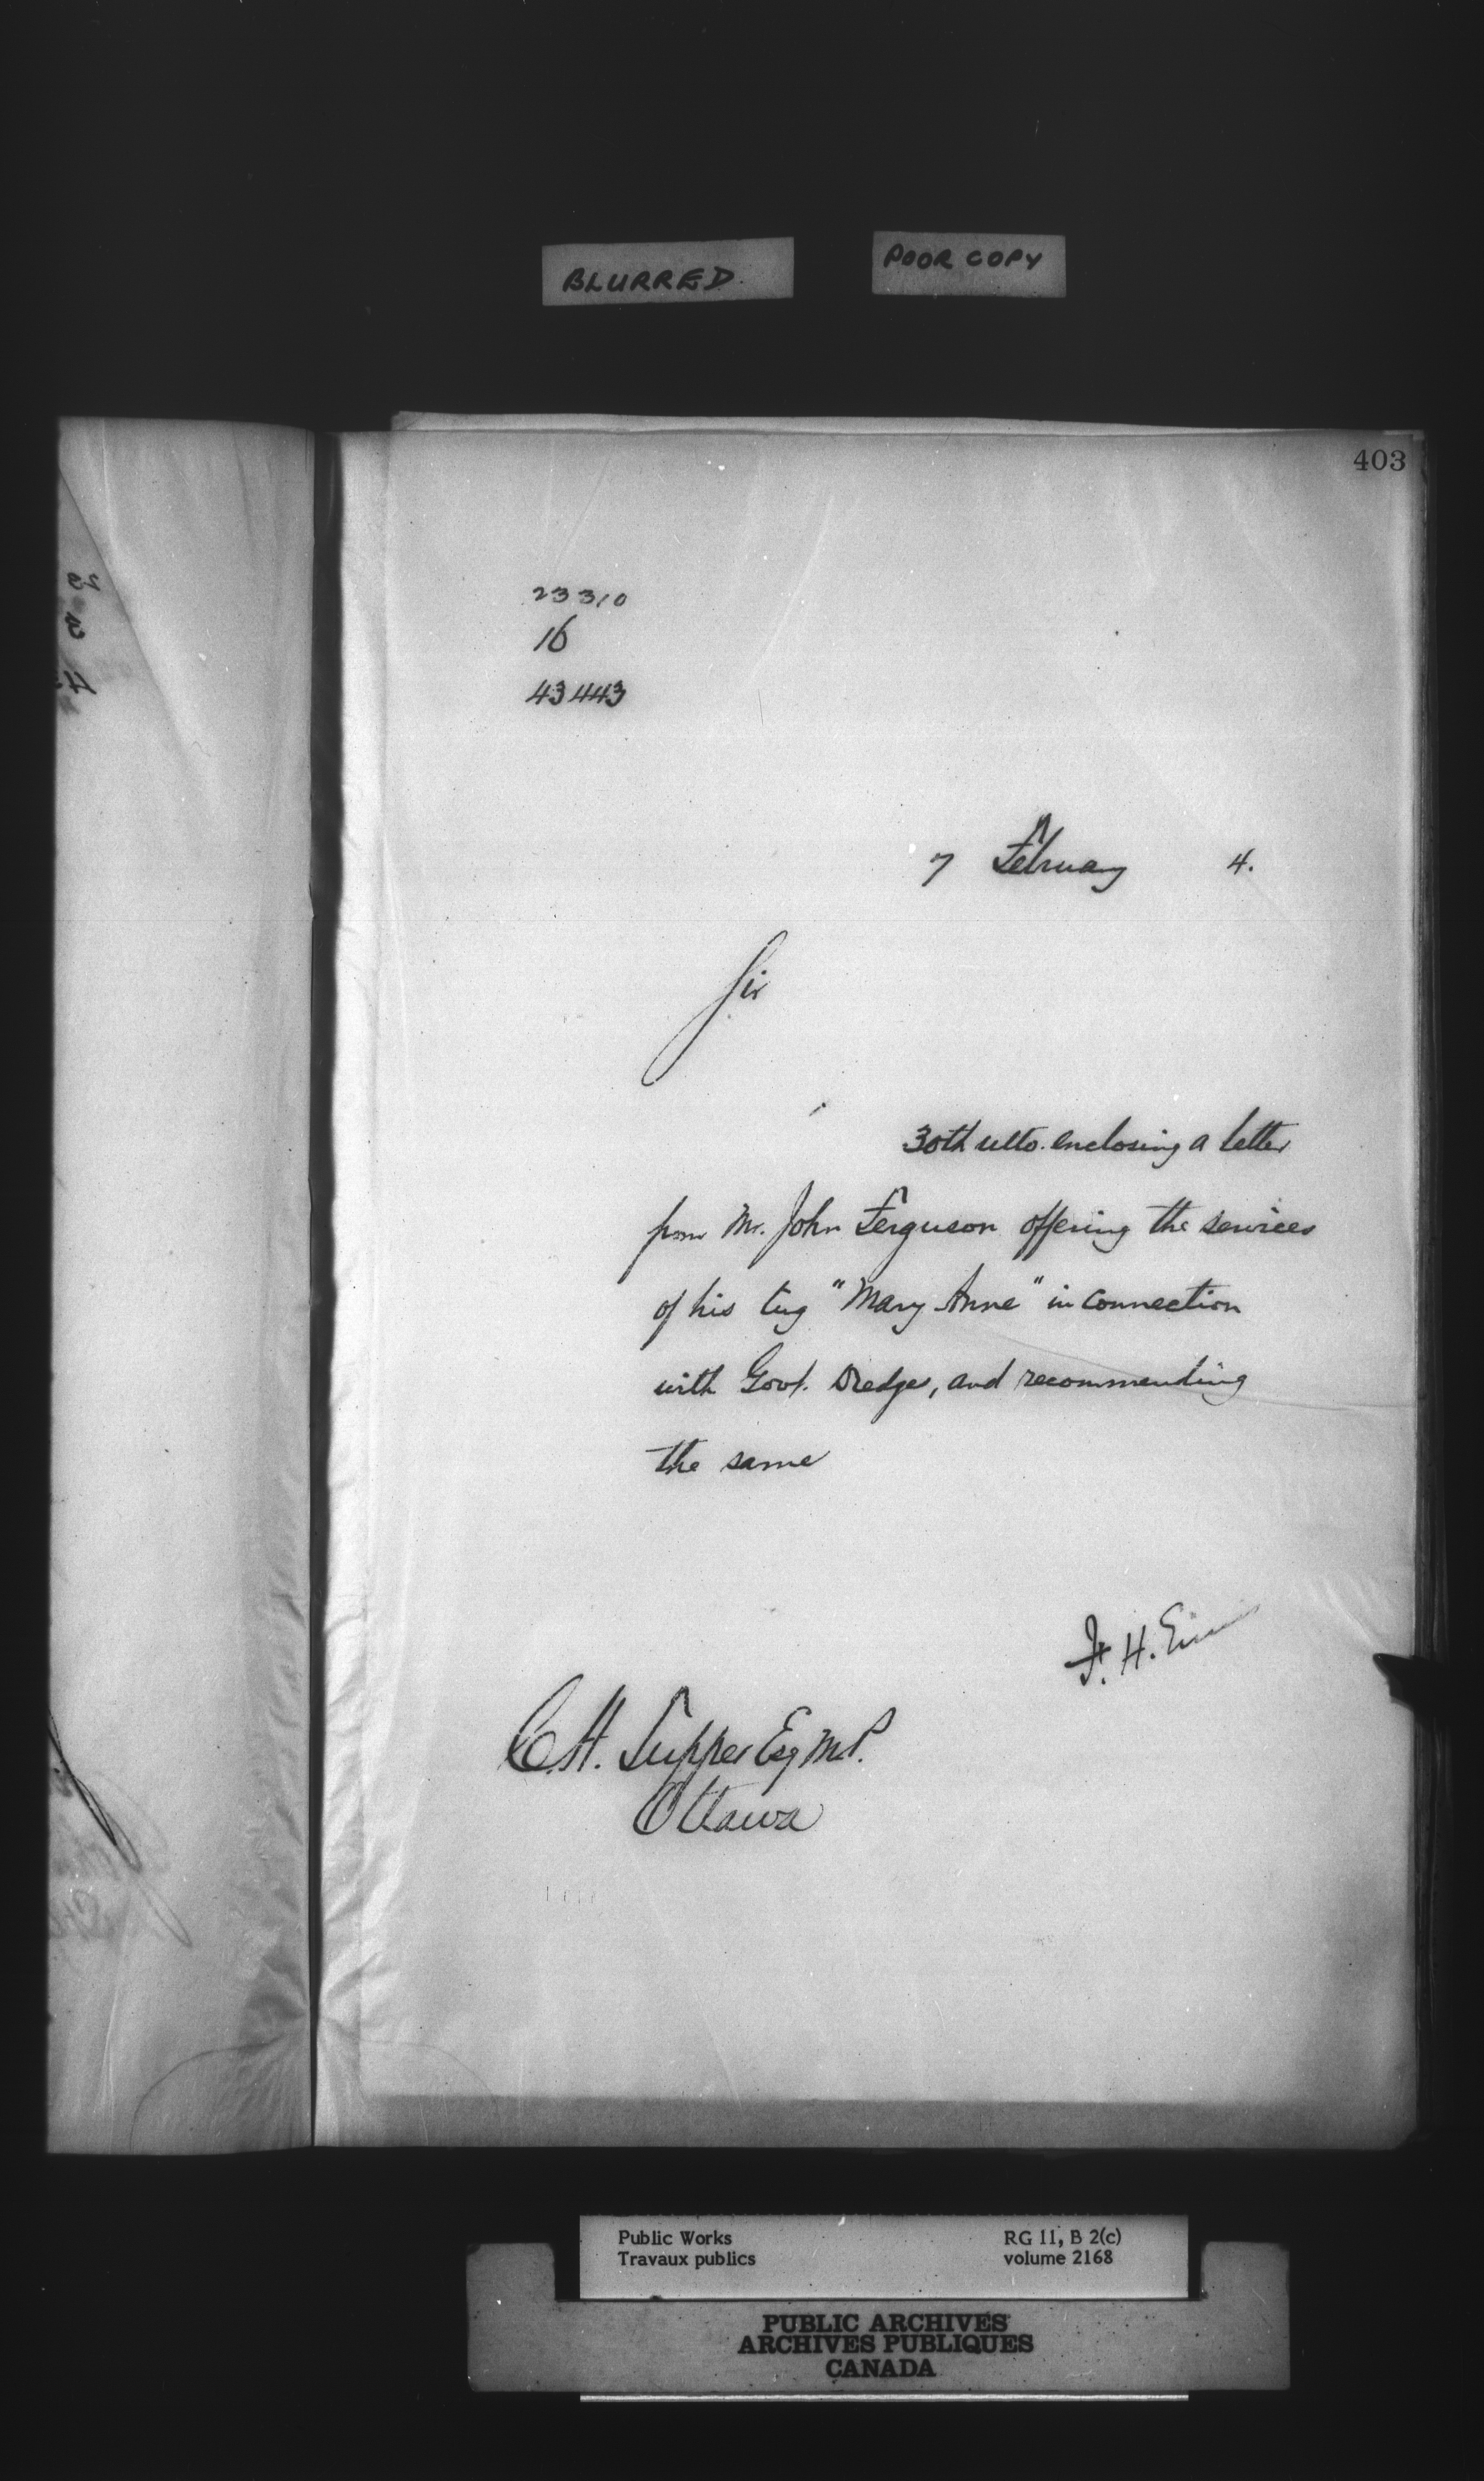 BLURRED.
POOR COPY
403
23310
16
43443
7 February 4.
Sir
30th ulto. enclosing a letter
from Mr. John Ferguson offering the services
of his tug "Mary Anne" in connection
with Govt. Dredges, and recommending
the same
F. H. Ennis
C. H. Tupper Esq M.P.
Ottawa
Public Works
Travaux publics
RG 11, B 2(c)
volume 2168
PUBLIC ARCHIVES
ARCHIVES PUBLIQUES
CANADA